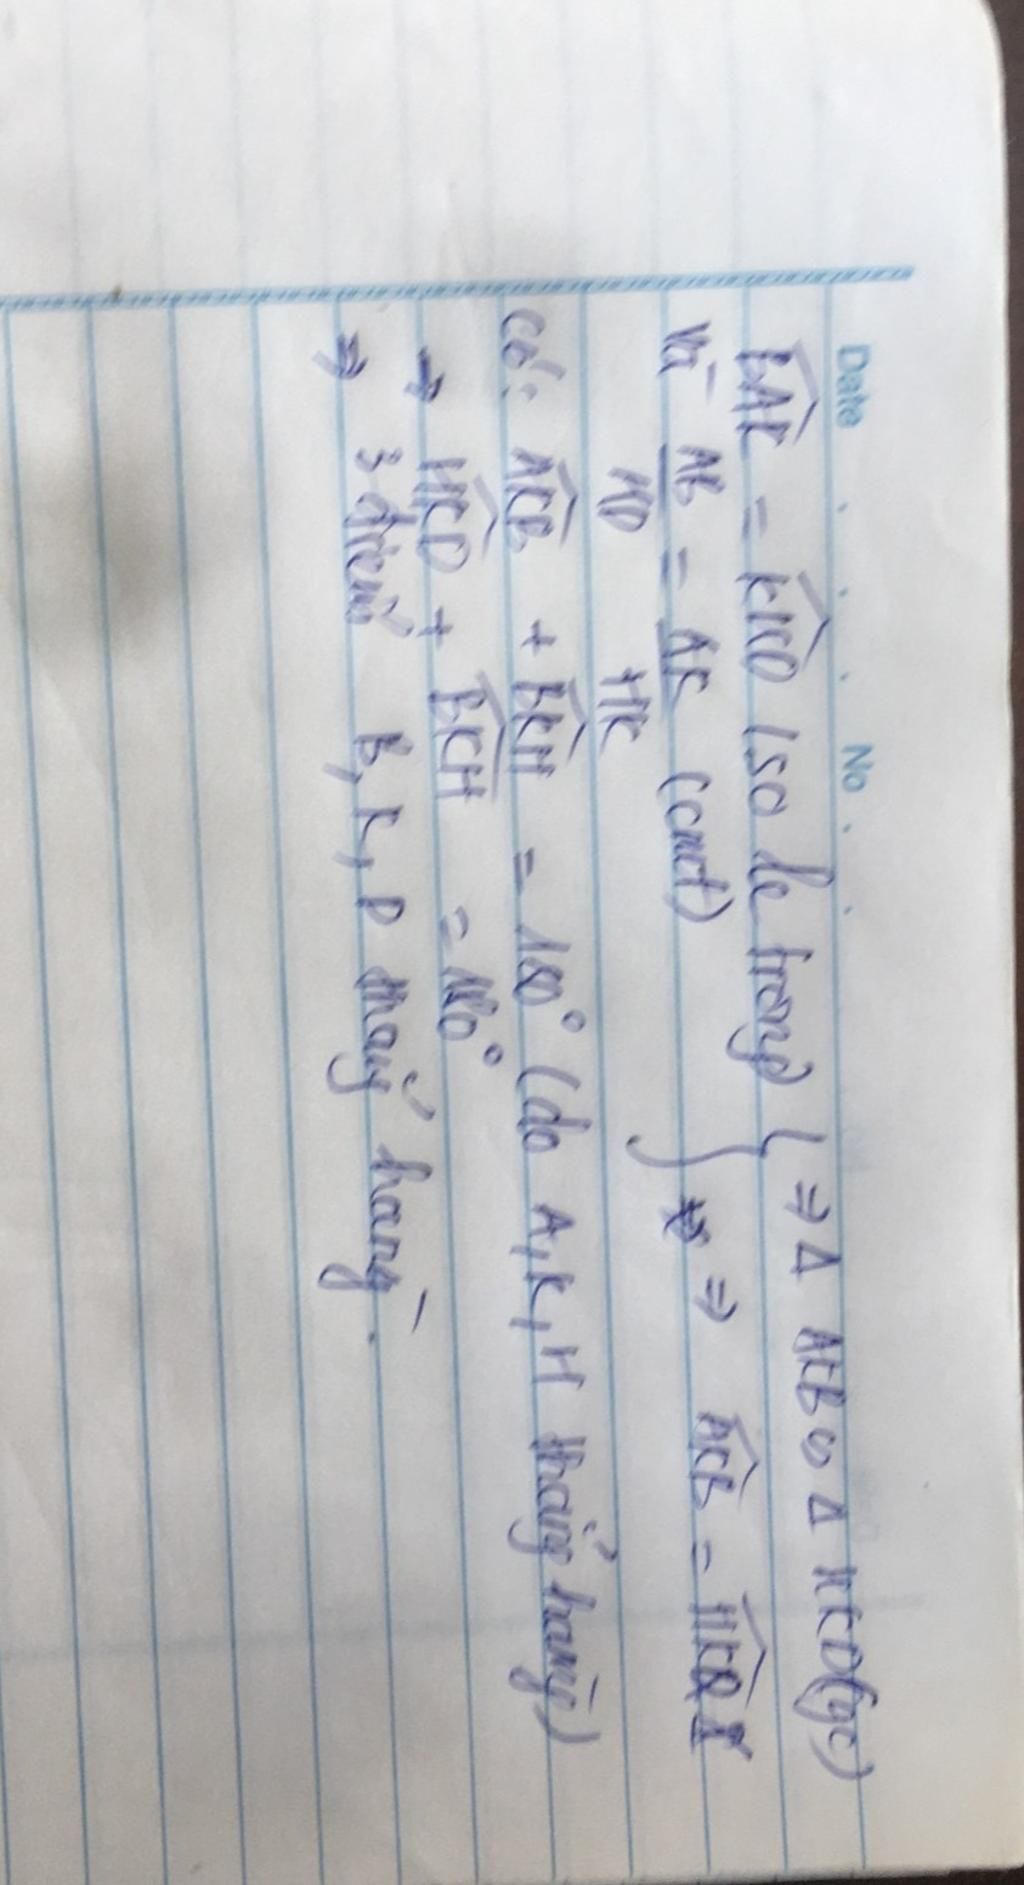 Date No.
BAK = KHD (so le trong) } ⇒ Δ AKB ∽ Δ HKD (cgc)
và AB/HD = AK/HK (cmt) ⇒ AKB = HKD
có: AKB + BKH = 180° (do A, K, H thẳng hàng)
→ HKD + BKH = 180°
⇒ 3 điểm B, K, D thẳng hàng.